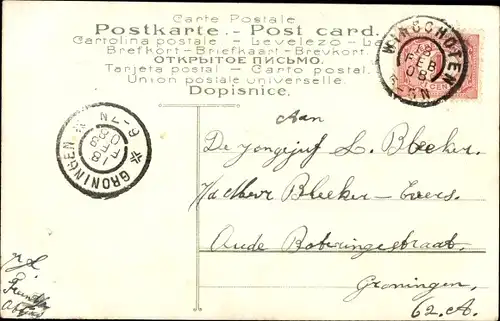 Carte Postale
Postkarte.- Post card.
Cartolina postale - Levelezo-La
Brefkort - Briefkaart - Brevkort.
ОТКРЫТОЕ ПИСЬМО.
Tarjeta postal - Carto postal.
Union postale universelle.
Dopisnice.
WINSCHOTEN
18
FEB
08
GRONINGEN
6-7N
Aan
De Jongejuf L. Bleeker.
Bleeker-
Oude Boteringestraat.
Groningen.
62.A.